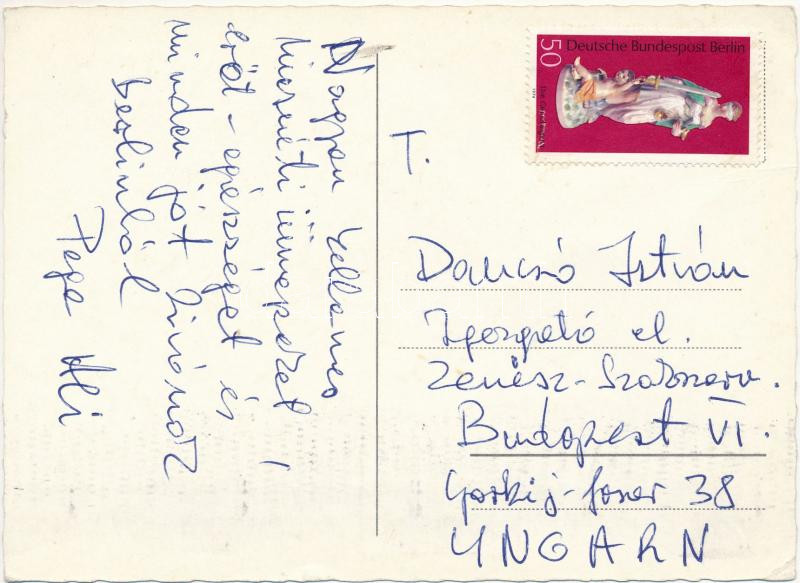 Nagyon kellemes
húsvéti ünnepeket!
erőt - egészséget és
minden jót kívánok
Berlinből
Ali
Deutsche Bundespost Berlin
50
T.
Dancsó István
Igazgató el.
Zenész-Szakszerv.
Budapest VI.
Gorkij-fasor 38
UNGARN